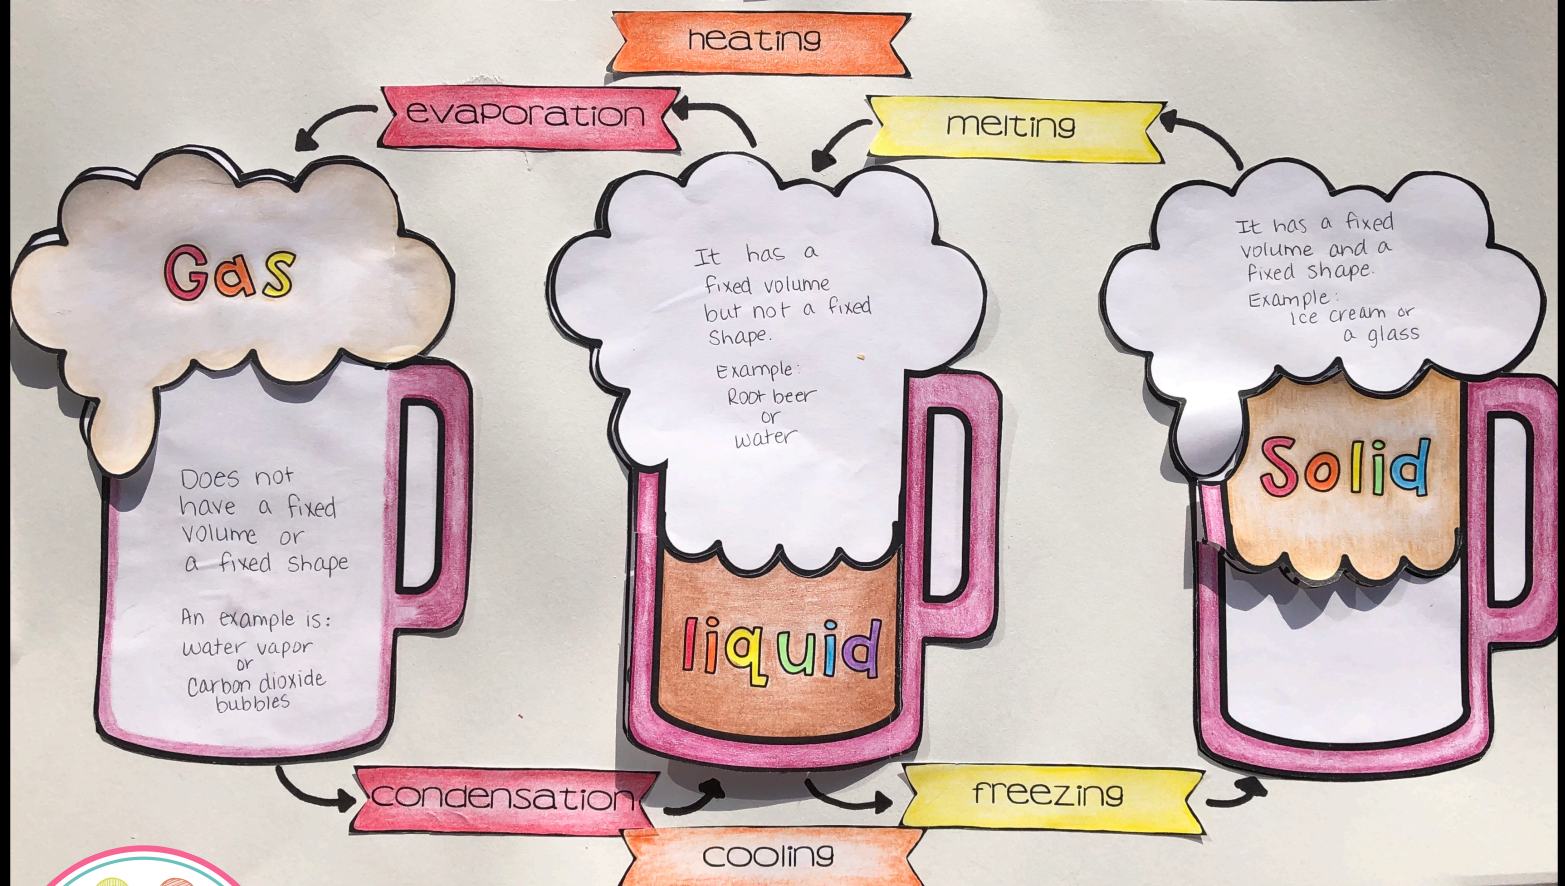 heating
evaporation
melting
Gas
Does not
have a fixed
volume or
a fixed shape
An example is:
water vapor
or
Carbon dioxide
bubbles
It has a
fixed volume
but not a fixed
Shape.
Example:
Root beer
or
water
liquid
It has a fixed
volume and a
fixed shape.
Example:
Ice cream or
a glass
Solid
condensation
freezing
cooling